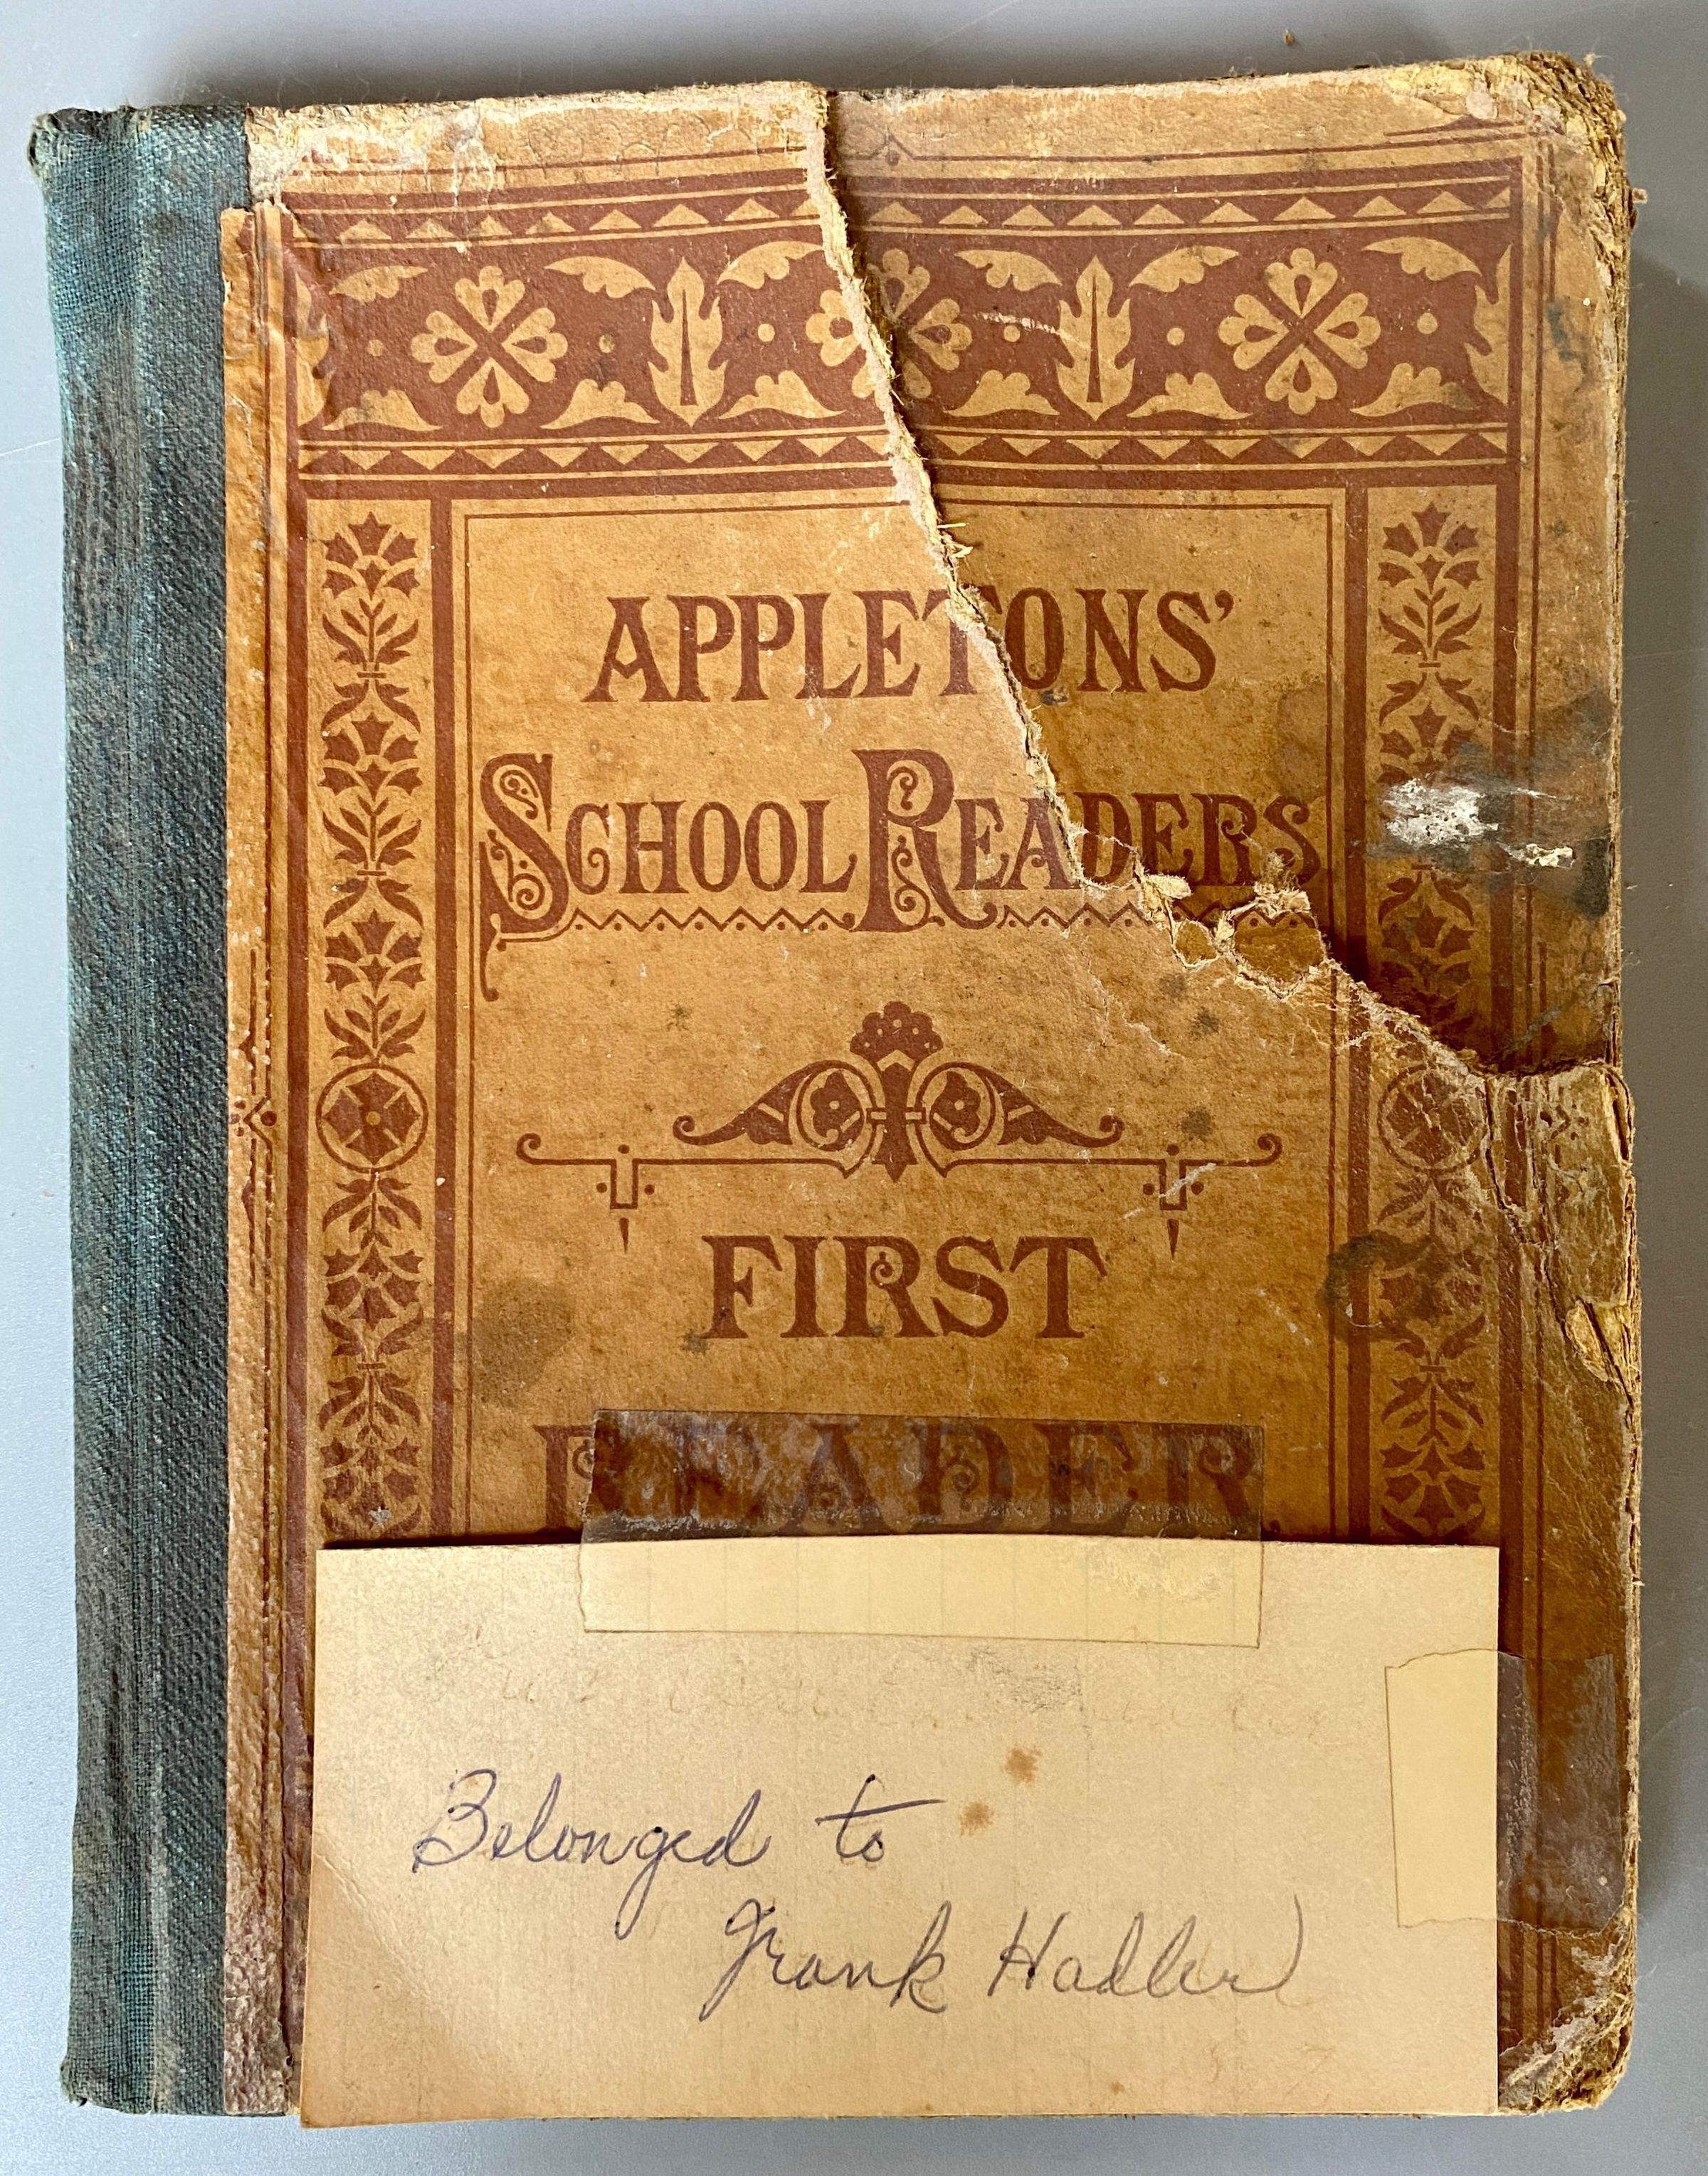 APPLETONS'
SCHOOL READERS
FIRST
READER
Belonged to
Frank Hadler